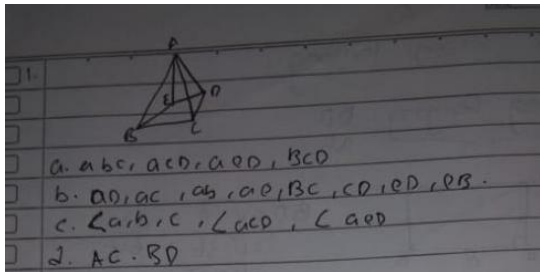 1.
A
E D
B C
a. abc, acD, aeD, BCD
b. aD, ac, ab, ae, BC, CD, eD, eB.
c. ∠a,b,c, ∠acD, ∠aeD
2. AC. BD